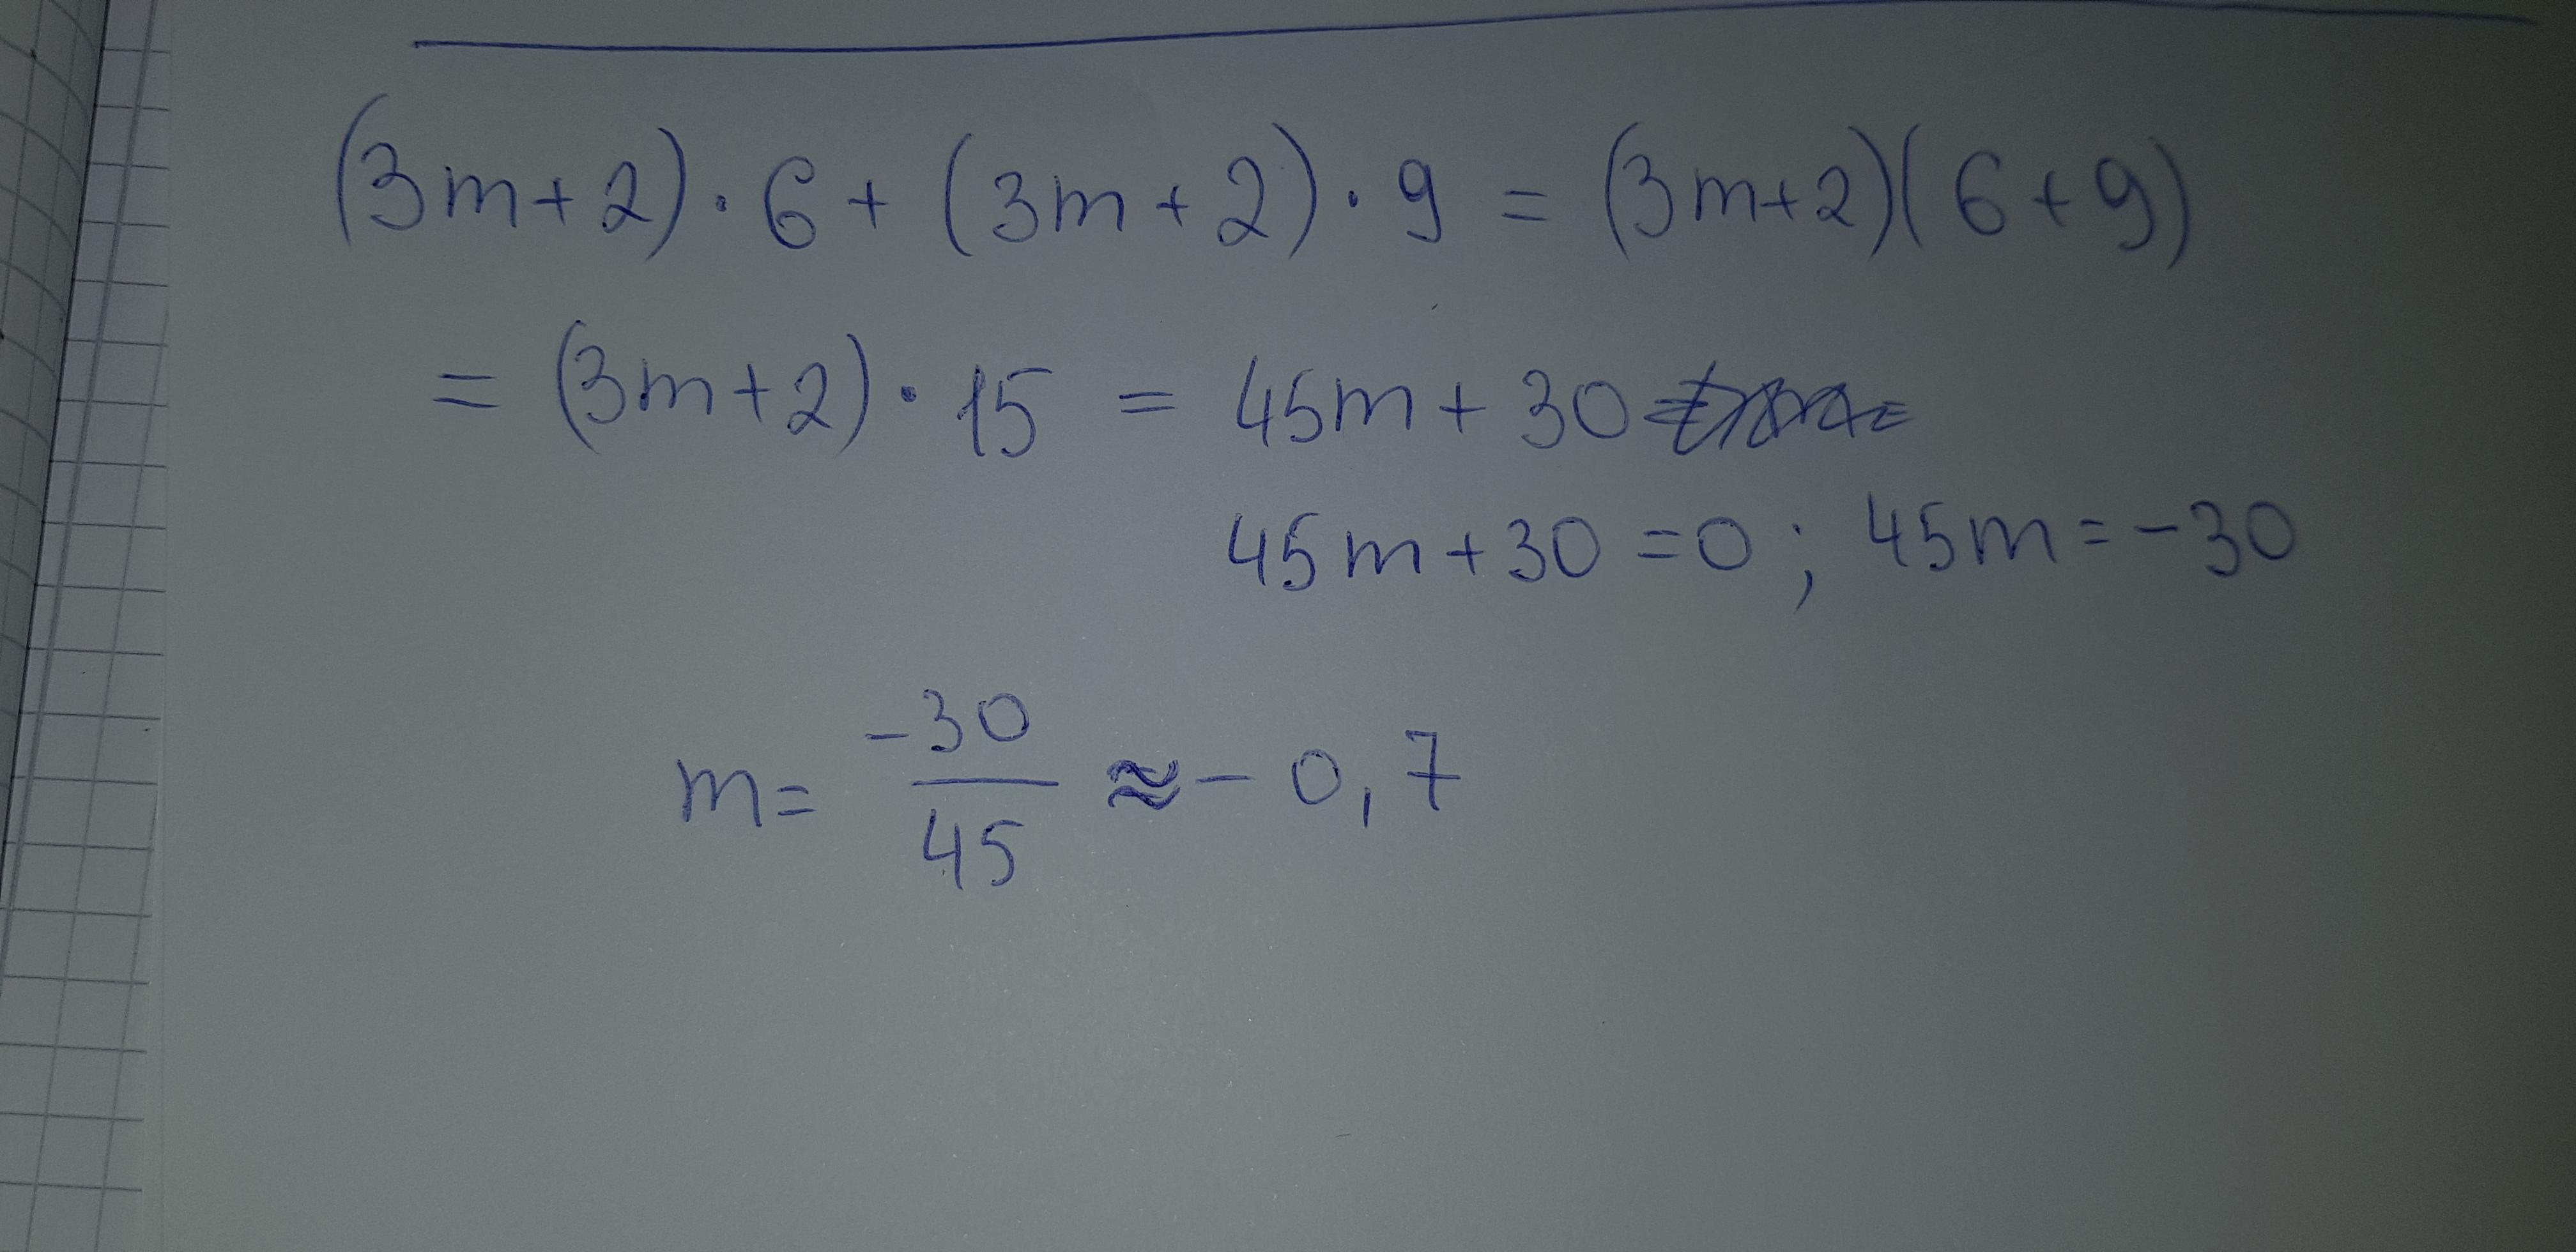 (3m+2)·6+(3m+2)·9=(3m+2)(6+9)
=(3m+2)·15=45m+30
45m+30=0; 45m=-30
m=-30/45≈-0,7